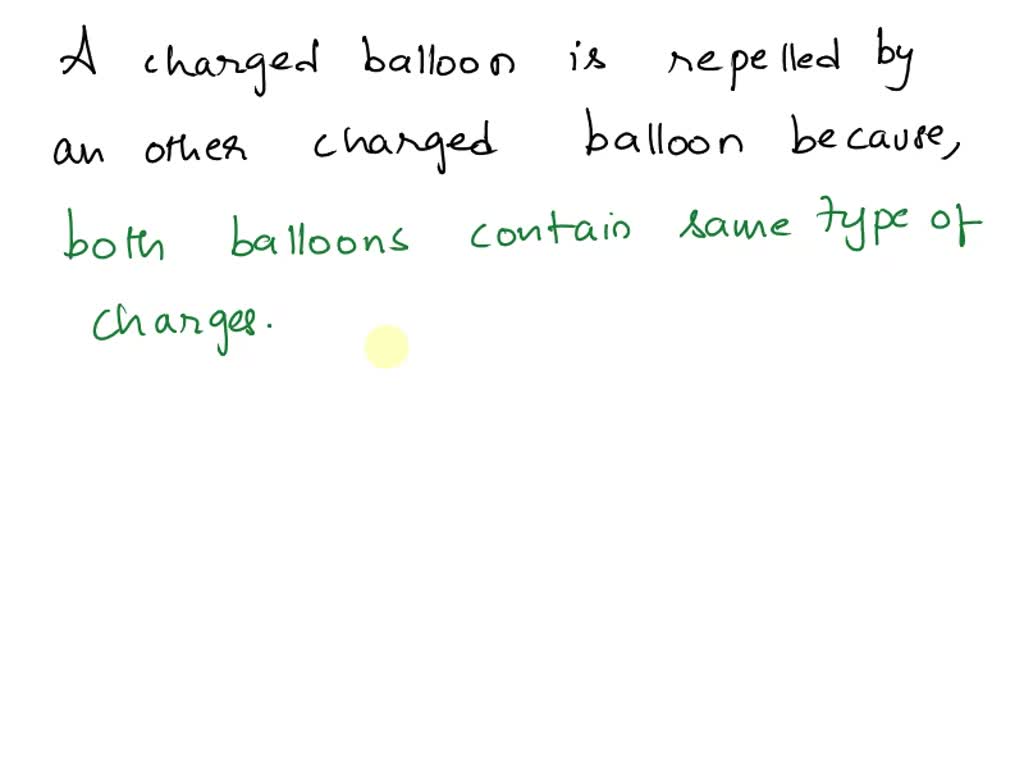 A charged balloon is repelled by
an other charged balloon because,
both balloons contain same type of
charges.